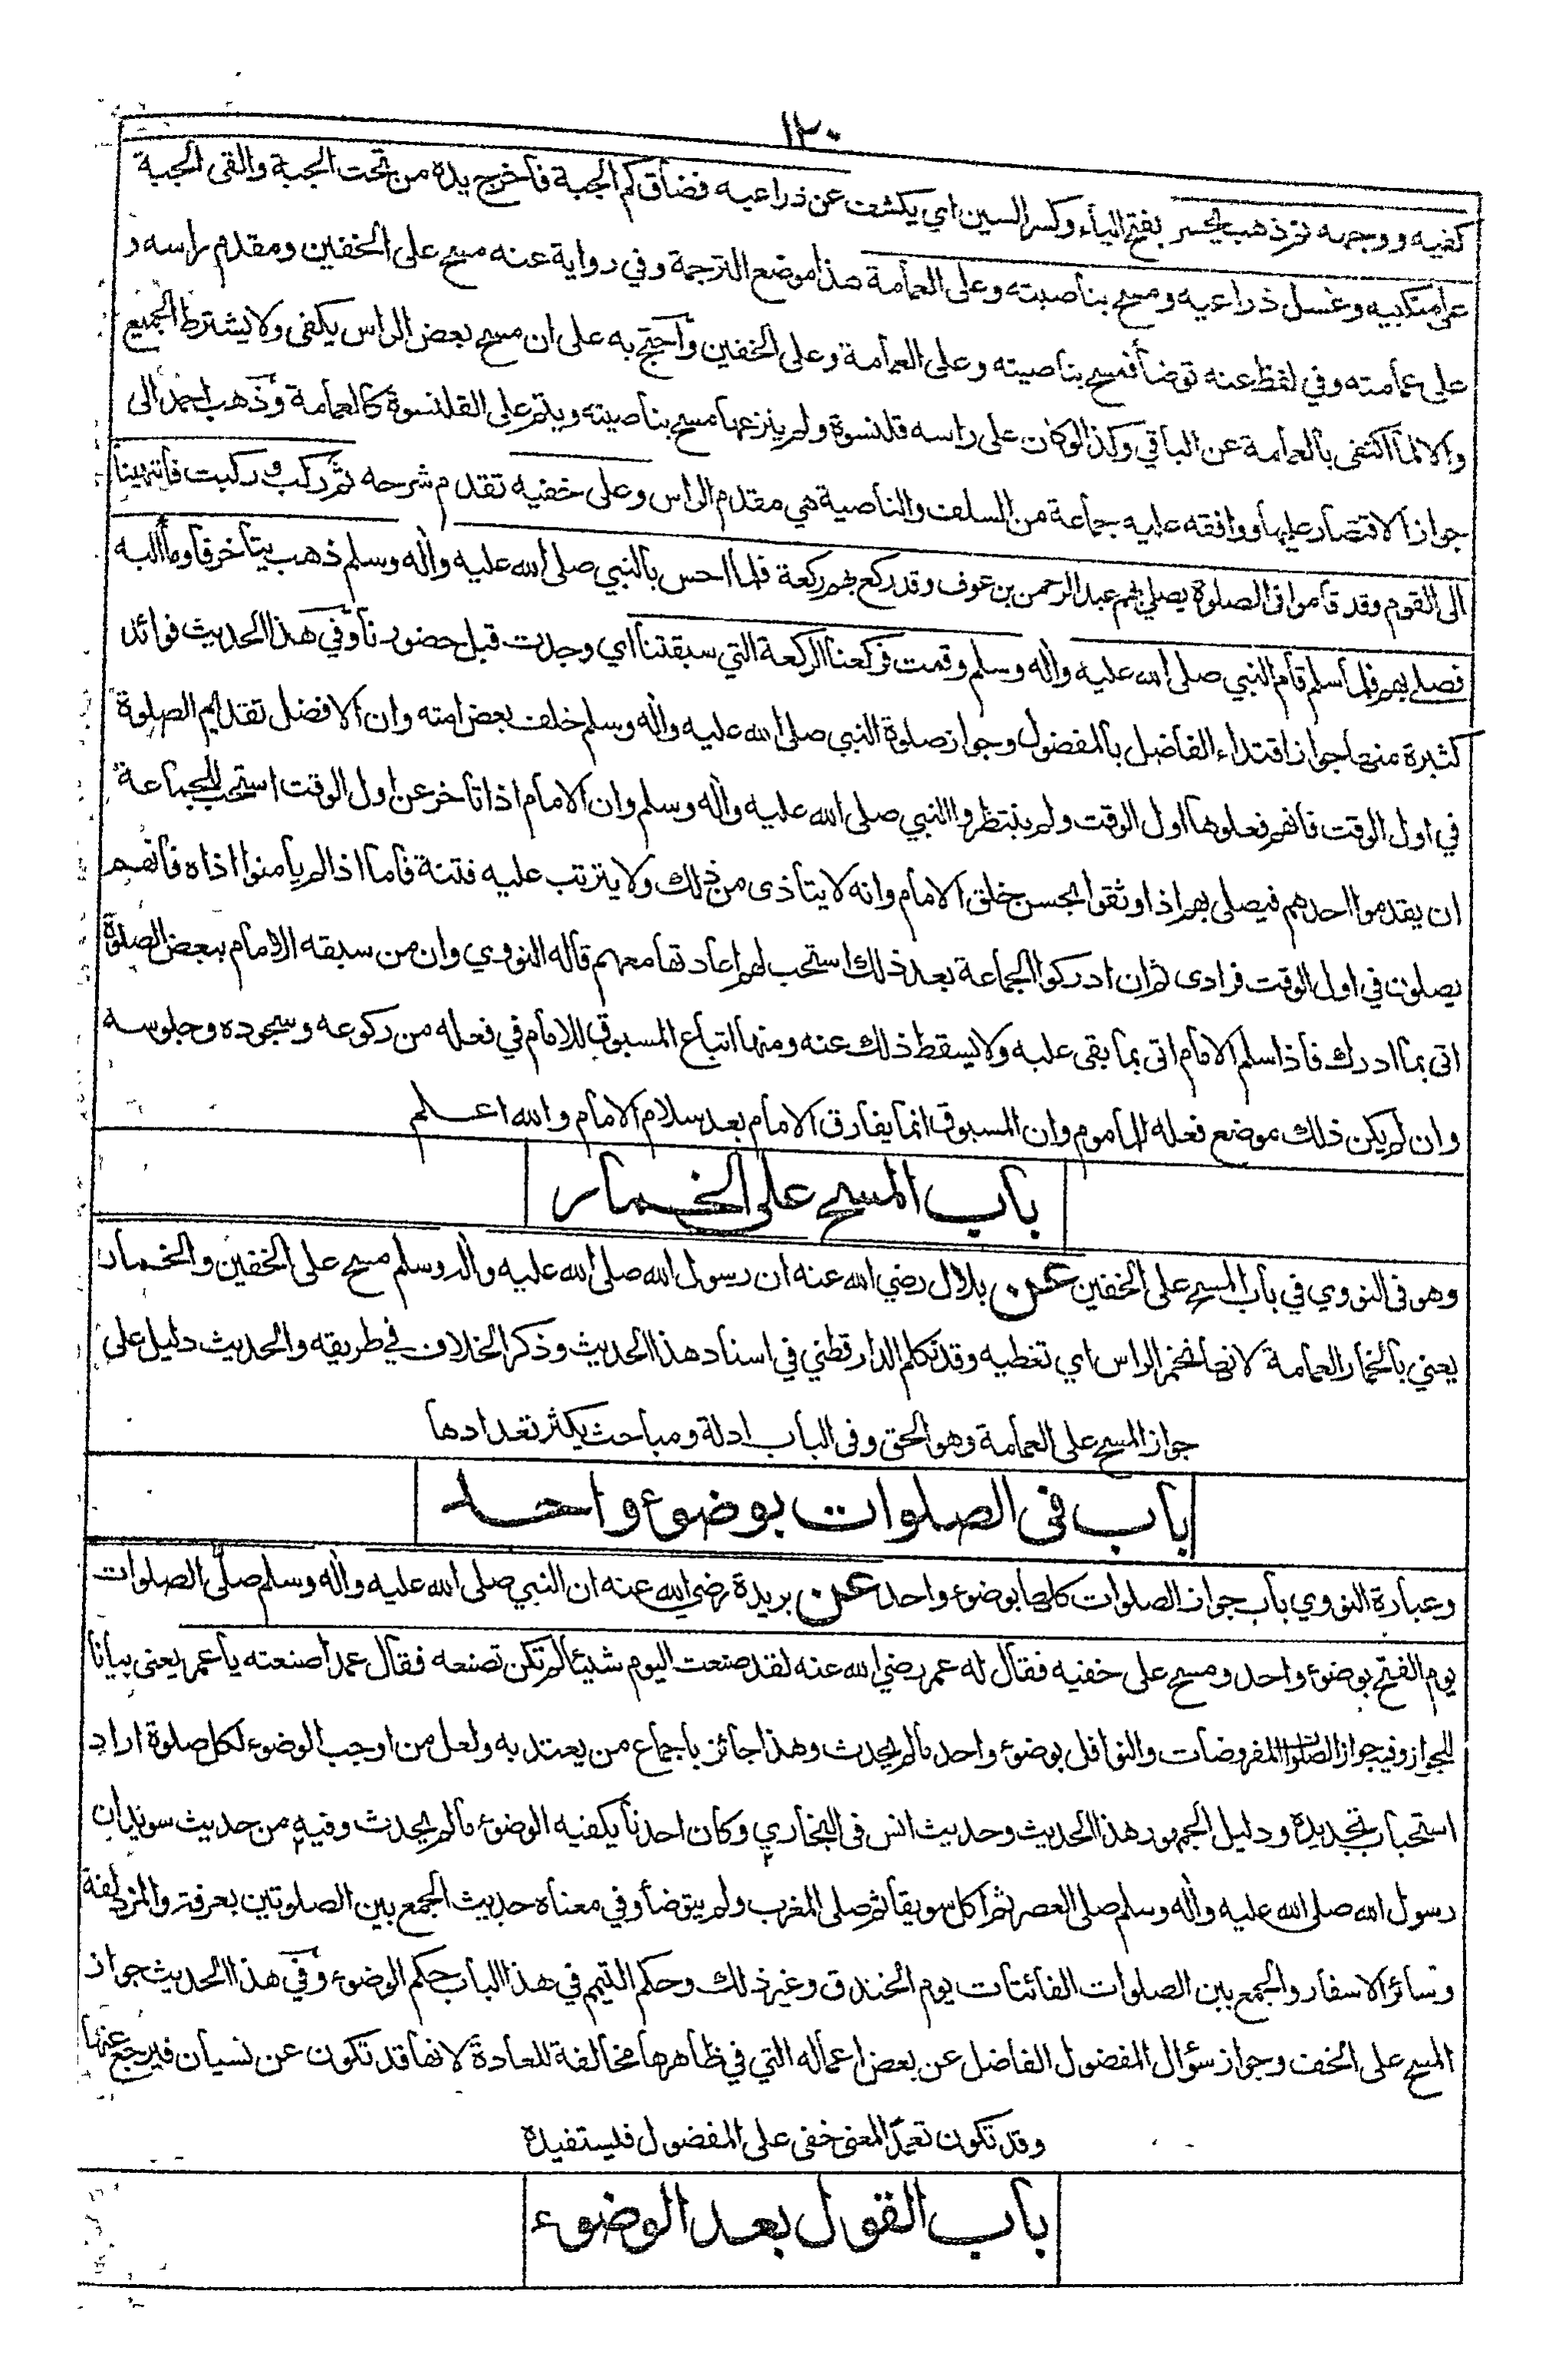 ١٢٠
كفيه ووجهه ثم ذهب يحسر بفتح الياء وكسر السين اي يكشف عن ذراعيه فضاق كم الجبة فاخرج يده من تحت الجبة والقى الجبة
على منكبيه وغسل ذراعيه ومسح بناصيته وعلى العمامة هذا موضع الترجمة وفي رواية عنه مسح على الخفين ومقدم راسه و
على عمامته وفي لفظ عنه توضأ فمسح بناصيته وعلى العمامة وعلى الخفين واحتج به على ان مسح بعض الراس يكفى ولا يشترط الجميع
والا لما اكتفى بالعمامة عن الباقي وكذا لو كان على راسه قلنسوة ولم ينزعها مسح بناصيته ويتم على القلنسوة كالعمامة وذهب احمد الى
جواز الاقتصار عليها ووافقه عليه جماعة من السلف والناصية هي مقدم الراس وعلى خفيه تقدم شرحه ثم ركب و ركبت فانتهينا
الى القوم وقد قاموا فى الصلوة يصلي بهم عبد الرحمن بن عوف وقد ركع بهم ركعة فلما احس بالنبي صلى الله عليه واله وسلم ذهب يتاخر فاوما اليه
فصلى بهم فلما سلم قام النبي صلى الله عليه واله وسلم وقمت فركعنا الركعة التي سبقتنا اي وجدت قبل حضورنا وفي هذا الحديث فوائد
كثيرة منها جواز اقتداء الفاضل بالمفضول وجواز صلوة النبي صلى الله عليه واله وسلم خلف بعض امته وان الافضل تقديم الصلوة
في اول الوقت فانهم فعلوها اول الوقت ولم ينتظروا النبي صلى الله عليه واله وسلم وان الامام اذا تاخر عن اول الوقت استحب للجماعة
ان يقدموا احدهم فيصلى بهم اذا وثقوا بحسن خلق الامام وانه لا يتأذى من ذلك ولا يترتب عليه فتنة فاما اذا لم يامنوا اذاه فانهم
يصلون في اول الوقت فرادى ثم ان ادركوا الجماعة بعد ذلك استحب لهم اعادتها معهم قاله النووي وان من سبقه الامام ببعض الصلوة
اتى بما ادرك فاذا سلم الامام اتى بما بقى عليه ولا يسقط ذلك عنه ومنها اتباع المسبوق للامام في فعله من ركوعه وسجوده وجلوسه
وان لم يكن ذلك موضع فعله للماموم وان المسبوق انما يفارق الامام بعد سلام الامام والله اعلم
باب المسح على الخمار
وهو فى النووي في باب المسح على الخفين عن بلال رضي الله عنه ان رسول الله صلى الله عليه واله وسلم مسح على الخفين والخمار
يعني بالخمار العمامة لانها تخمر الراس اي تغطيه وقد تكلم الدارقطني في اسناد هذا الحديث وذكر الخلاف في طريقه والحديث دليل على
جواز المسح على العمامة وهو الحق وفى الباب ادلة ومباحث يكثر تعدادها
باب فى الصلوات بوضوء واحد
وعبارة النووي باب جواز الصلوات كلها بوضوء واحد عن بريدة رضي الله عنه ان النبي صلى الله عليه واله وسلم صلى الصلوات
يوم الفتح بوضوء واحد ومسح على خفيه فقال له عمر رضي الله عنه لقد صنعت اليوم شيئا لم تكن تصنعه فقال عمدا صنعته يا عمر يعنى بيانا
للجواز وفيه جواز الصلوات المفروضات والنوافل بوضوء واحد مالم يحدث وهذا جائز باجماع من يعتد به ولعل من اوجب الوضوء لكل صلوة اراد
استحباب تجديده ودليل الجمهور هذا الحديث وحديث انس فى البخاري وكان احدنا يكفيه الوضوء مالم يحدث وفيه من حديث سويد ان
رسول الله صلى الله عليه واله وسلم صلى العصر ثم اكل سويقا ثم صلى المغرب ولم يتوضأ وفي معناه حديث الجمع بين الصلوتين بعرفة والمزدلفة
وسائر الاسفار والجمع بين الصلوات الفائتات يوم الخندق وغير ذلك وحكم التيمم في هذا الباب حكم الوضوء وفي هذا الحديث جواز
المسح على الخف وجواز سؤال المفضول الفاضل عن بعض اعماله التي في ظاهرها مخالفة للعادة لانها قد تكون عن نسيان فيرجع عنها
وقد تكون تعمدا لمعنى خفى على المفضول فليستفيده
باب القول بعد الوضوء